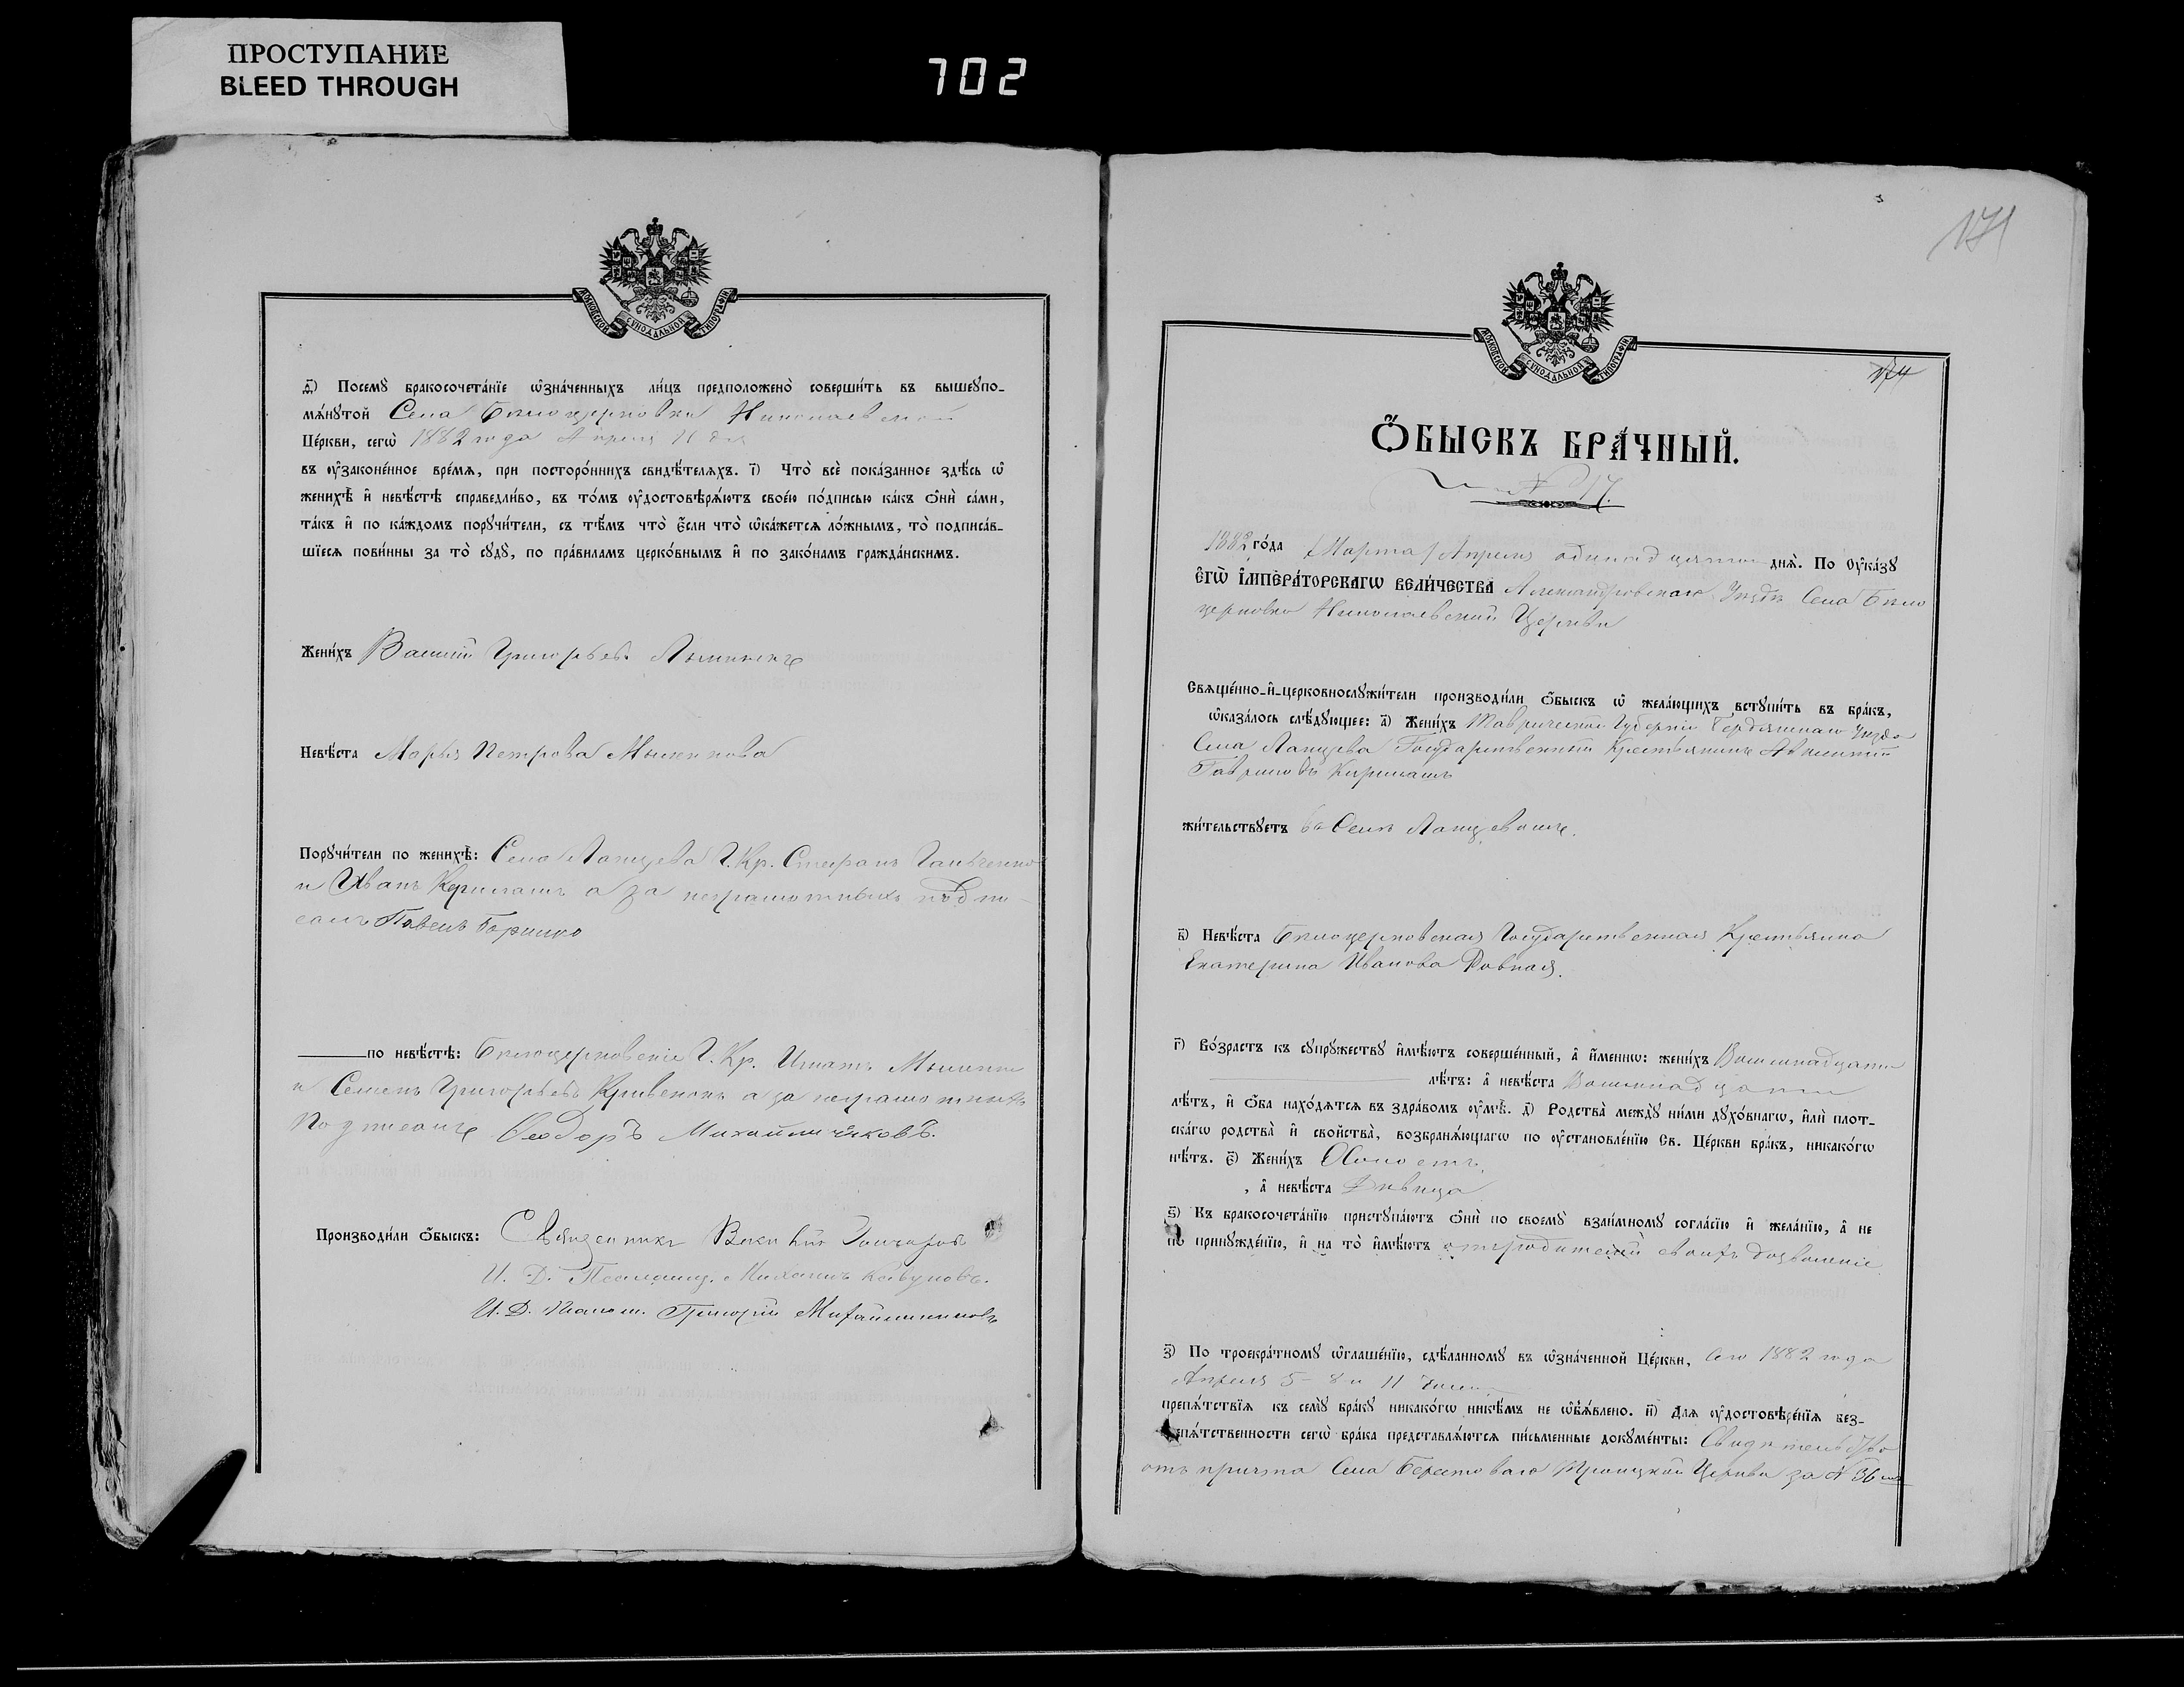 ПРОСТУПАНИЕ
BLEED THROUGH
702
МОСКОВСКОЙ СѴНОДАЛЬНОЙ ТИПОГРАФІИ
Посемꙋ бракосочета́нїе ѡ҆зна́ченныхъ ли́цъ предположено̀ соверши́ть въ вышеꙋпо-
мѧ́нꙋтой Села Белоцерковки Николаевской
Це́ркви, сегѡ̀ 1882 года Апреля 11 дня
въ ᲂу҆законе́нное вре́мѧ, при посторо́ннихъ свидѣ́телѧхъ. і҃) Что̀ всѐ пока́занное здѣ́сь ѡ҆
женихѣ̀ и҆ невѣ́стѣ справедли́во, въ то́мъ ᲂу҆достовѣрѧ́ютъ свое́ю по́дписью ка́къ ѻ҆нѝ са́ми,
та́къ и҆ по ка́ждомъ порꙋчи́тели, съ тѣ́мъ что̀ є҆́сли что̀ ѡ҆ка́жетсѧ ло́жнымъ, то̀ подписа́в-
шїесѧ пови́нны за то̀ сꙋдꙋ̀, по пра́виламъ церко́внымъ и҆ по зако́намъ гражда́нскимъ.
Жени́хъ Василий Григорьевъ
Невѣ́ста Марья Петрова
Порꙋчи́тели по женихѣ̀: Села Ланцева Г. Кр. Стефанъ
и Иванъ Кирилашъ а за неграмотныхъ подпи-
салъ Павелъ
по невѣ́стѣ: Белоцерковскіе Г. Кр. Игнатъ
и Семенъ Григорьевъ а за неграмотныхъ
Подписалъ Ѳеодоръ Михайличиковъ.
Производи́ли ѻ҆́быскъ: Священникъ
И. Д. Псаломщ. Михаилъ Кавуновъ.
И. Д. Григорій
171
174
МОСКОВСКОЙ СѴНОДАЛЬНОЙ ТИПОГРАФІИ
Ѻ҆́БЫСКЪ БРА́ЧНЫЙ.
№ 17.
1882 го́да Марта / Апреля одинадцатого днѧ̀. По Оу҆ка́зꙋ
Є҆ГѠ̀ І҆МПЕРА́ТОРСКАГѠ ВЕЛИ́ЧЕСТВА Александровскаго Уезда Села Бело
церковки Николаевской Церкви
Свѧще́нно-и҆-церковнослꙋжи́тели производи́ли ѻ҆́быскъ ѡ҆ жела́ющихъ встꙋпи́ть въ бра́къ,
ѡ҆каза́лось слѣ́дꙋющее: а҃) Жени́хъ Таврической Губерніи Бердянскаго Уезда
Села Ланцева Государственный Крестьянинъ
Гавриловъ Кирилашъ
жи́тельствꙋетъ въ Селе
в҃) Невѣ́ста Белоцерковская Государственная Крестьянка
Екатерина Иванова Ровная.
г҃) Во́зрастъ къ сꙋпрꙋ́жествꙋ и҆мѣ́ютъ соверше́нный, а҆ и҆́меннѡ: жени́хъ Восемнадцати
лѣ́тъ: а҆ невѣ́ста Восемнадцати
лѣ́тъ, и҆ ѻ҆́ба нахо́дѧтсѧ въ здра́вомъ ᲂу҆мѣ̀. д҃) Родства̀ междꙋ̀ ни́ми дꙋхо́внагѡ, и҆лѝ плот-
ска́гѡ родства̀ и҆ свойства̀, возбранѧ́ющагѡ по ᲂу҆становле́нїю Св. Це́ркви бра́къ, никако́гѡ
нѣ́тъ. є҃) Жени́хъ Холостъ
, а҆ невѣ́ста Девица
ѕ҃) Къ бракосочета́нїю пристꙋпа́ютъ ѻ҆нѝ по своемꙋ̀ взаи́мномꙋ согла́сїю и҆ жела́нїю, а҆ не
по принꙋжде́нїю, и҆ на то̀ и҆мѣ́ютъ отъ родителей своихъ дозволеніе
з҃) По троекра́тномꙋ ѡ҆глаше́нїю, сдѣ́ланномꙋ въ ѡ҆зна́ченной Це́ркви, Сего 1882 года
Апреля 5 – 8 и 11 чисел
препѧ́тствїѧ къ семꙋ̀ бра́кꙋ никако́гѡ никѣ́мъ не ѡ҆б̾ѧ́влено. и҃) Длѧ ᲂу҆достовѣре́нїѧ без-
епѧ́тственности сегѡ̀ бра́ка представлѧ́ютсѧ пи́сьменные докꙋме́нты: Свидетельство
отъ причта Села Берестоваго Троицкой Церкви за № 36